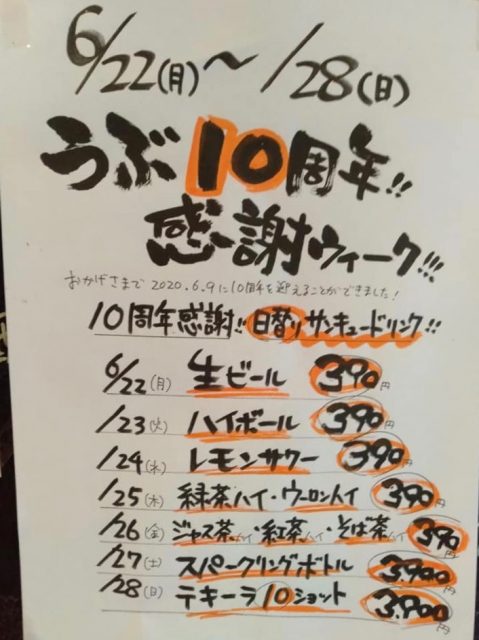 6/22(月)〜/28(日)
うぶ10周年!!
感謝ウィーク!!!
おかげさまで 2020.6.9に10周年を迎えることができました!
10周年感謝!! 日替りサンキュードリンク!!
6/22(月) 生ビール 390円
/23(火) ハイボール 390円
/24(水) レモンサワー 390円
/25(木) 緑茶ハイ・ウーロンハイ 390円
/26(金) ジャス茶ハイ・紅茶ハイ・そば茶ハイ 390円
/27(土) スパークリングボトル 3.900円
/28(日) テキーラ10ショット 3.900円